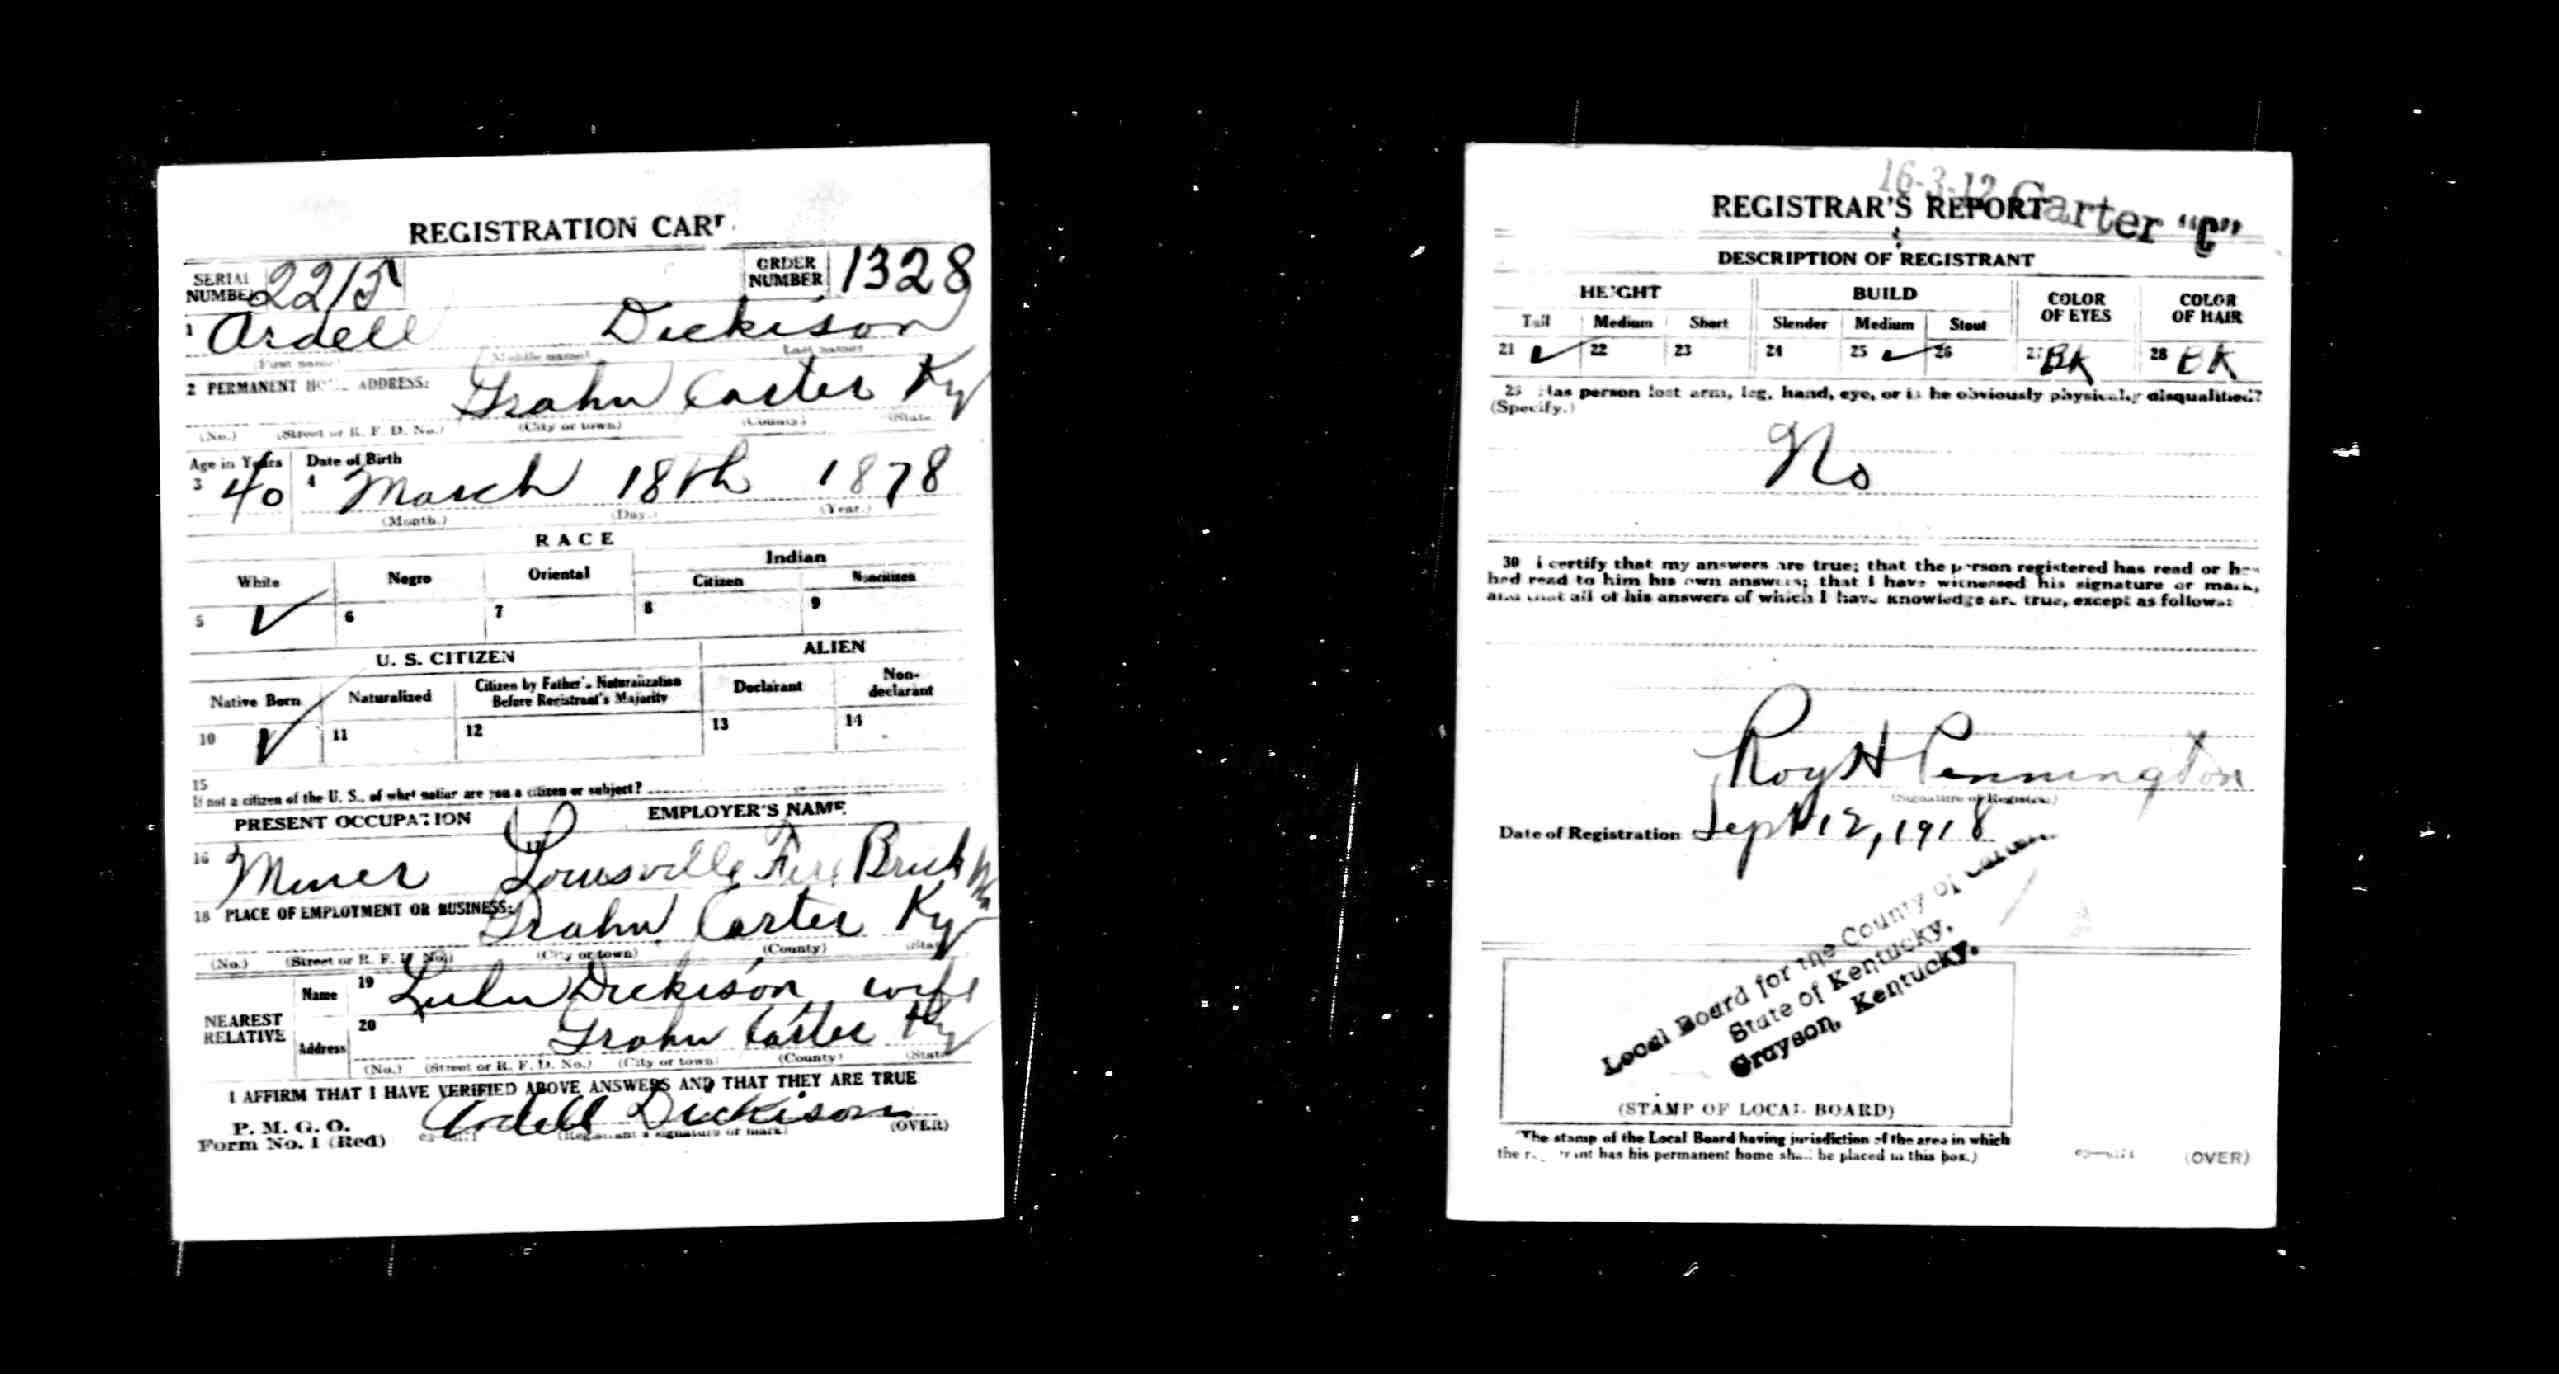 REGISTRATION CARD
SERIAL NUMBER 2215 ORDER NUMBER 1328
1 Ardell Dickison
(First name) (Middle name) (Last name)
2 PERMANENT HOME ADDRESS:
Grahn Carter Ky
(No.) (Street or R. F. D. No.) (City or town) (County) (State)
Age in Years Date of Birth
3 40 4 March 18th 1878
(Month.) (Day.) (Year.)
RACE
White Negro Oriental Indian
Citizen Noncitizen
5 ✓ 6 7 8 9
U. S. CITIZEN ALIEN
Native Born Naturalized Citizen by Father's Naturalization Before Registrant's Majority Declarant Non-declarant
10 ✓ 11 12 13 14
15
If not a citizen of the U. S., of what nation are you a citizen or subject?
PRESENT OCCUPATION EMPLOYER'S NAME
16 Miner 17 Louisville Fire Brick
18 PLACE OF EMPLOYMENT OR BUSINESS:
Grahn Carter Ky
(No.) (Street or R. F. D. No.) (City or town) (County) (State)
NEAREST RELATIVE
Name 19 Lulu Dickison wife
Address 20 Grahn Carter Ky
(No.) (Street or R. F. D. No.) (City or town) (County) (State)
I AFFIRM THAT I HAVE VERIFIED ABOVE ANSWERS AND THAT THEY ARE TRUE
P. M. G. O.
Form No. 1 (Red) Ardell Dickison
(Registrant's signature or mark) (OVER)
16-3-12 Carter "C"
REGISTRAR'S REPORT
DESCRIPTION OF REGISTRANT
HEIGHT BUILD COLOR OF EYES COLOR OF HAIR
Tall Medium Short Slender Medium Stout
21 ✓ 22 23 24 25 ✓ 26 27 BK 28 BK
29 Has person lost arm, leg, hand, eye, or is he obviously physically disqualified?
(Specify.)
No
30 I certify that my answers are true; that the person registered has read or has
had read to him his own answers; that I have witnessed his signature or mark,
and that all of his answers of which I have knowledge are true, except as follows:
Roy H Pennington
(Signature of Registrar)
Date of Registration Sept 12, 1918
Local Board for the County of Carter
State of Kentucky,
Grayson, Kentucky.
(STAMP OF LOCAL BOARD)
(The stamp of the Local Board having jurisdiction of the area in which
the registrant has his permanent home shall be placed in this box.)
(OVER)